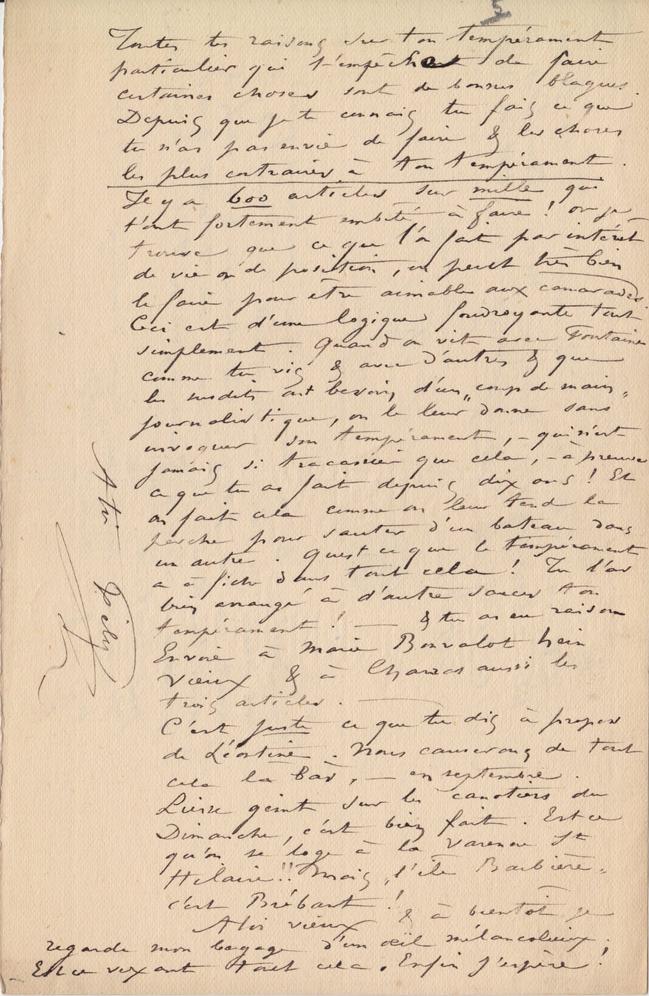 5
Toutes tes raisons sur ton tempérament
particulier qui t'empêche de faire
certaines choses sont de bonnes blagues.
Depuis que je te connais tu fais ce que
tu n'as pas envie de faire & les choses
les plus contraires à ton tempérament.
Il y a 600 articles sur mille qui
t'ont fortement embêté à faire ! or je
trouve que ce que l'on fait par intérêt
de vie ou de position, on peut très bien
le faire pour être aimable aux camarades.
Ceci est d'une logique foudroyante tout
simplement. Quand on vit avec Fontaine
comme tu vis & avec d'autres & que
les susdits ont besoin d'un "coup de main"
journalistique, on le leur donne sans
invoquer son tempérament, - qui n'est
jamais si tracassier que cela, - à preuve
ce que tu as fait depuis dix ans ! Et
on fait cela comme on leur tend la
perche pour sauter d'un bateau dans
un autre. Qu'est ce que le tempérament
a à ficher dans tout cela ! Tu l'as
bien arrangé à d'autres sauces ton
tempérament ! — & tu as eu raison
Envoie à Marie Bonvalot hein
vieux & à aussi les
trois articles. —
C'est juste ce que tu dis à propos
de Léontine. Nous causerons de tout
cela là bas, — en septembre.
geint sur les canotiers du
Dimanche, c'est bien fait. Est ce
qu'on se loge à la Varenne St
Hilaire !! Mais, l'île Barbière,
c'est Brébant !
A toi vieux & à bientôt je
regarde mon bagage d'un œil mélancolieux.
Est ce vexant tout cela. Enfin j'espère !
A toi